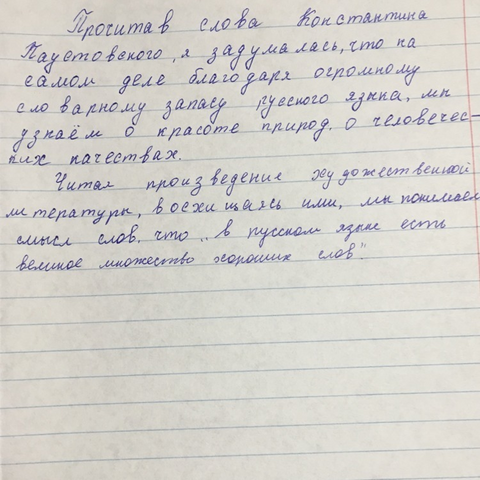 Прочитав слова Константина
Паустовского, я задумалась, что на
самом деле благодаря огромному
словарному запасу русского языка, мы
узнаём о красоте природ. о человечес-
ких качествах.
Читая произведение художественной
литературы, восхищаясь ими, мы понимаем
смысл слов. что „в русском языке есть
великое множество хороших слов".